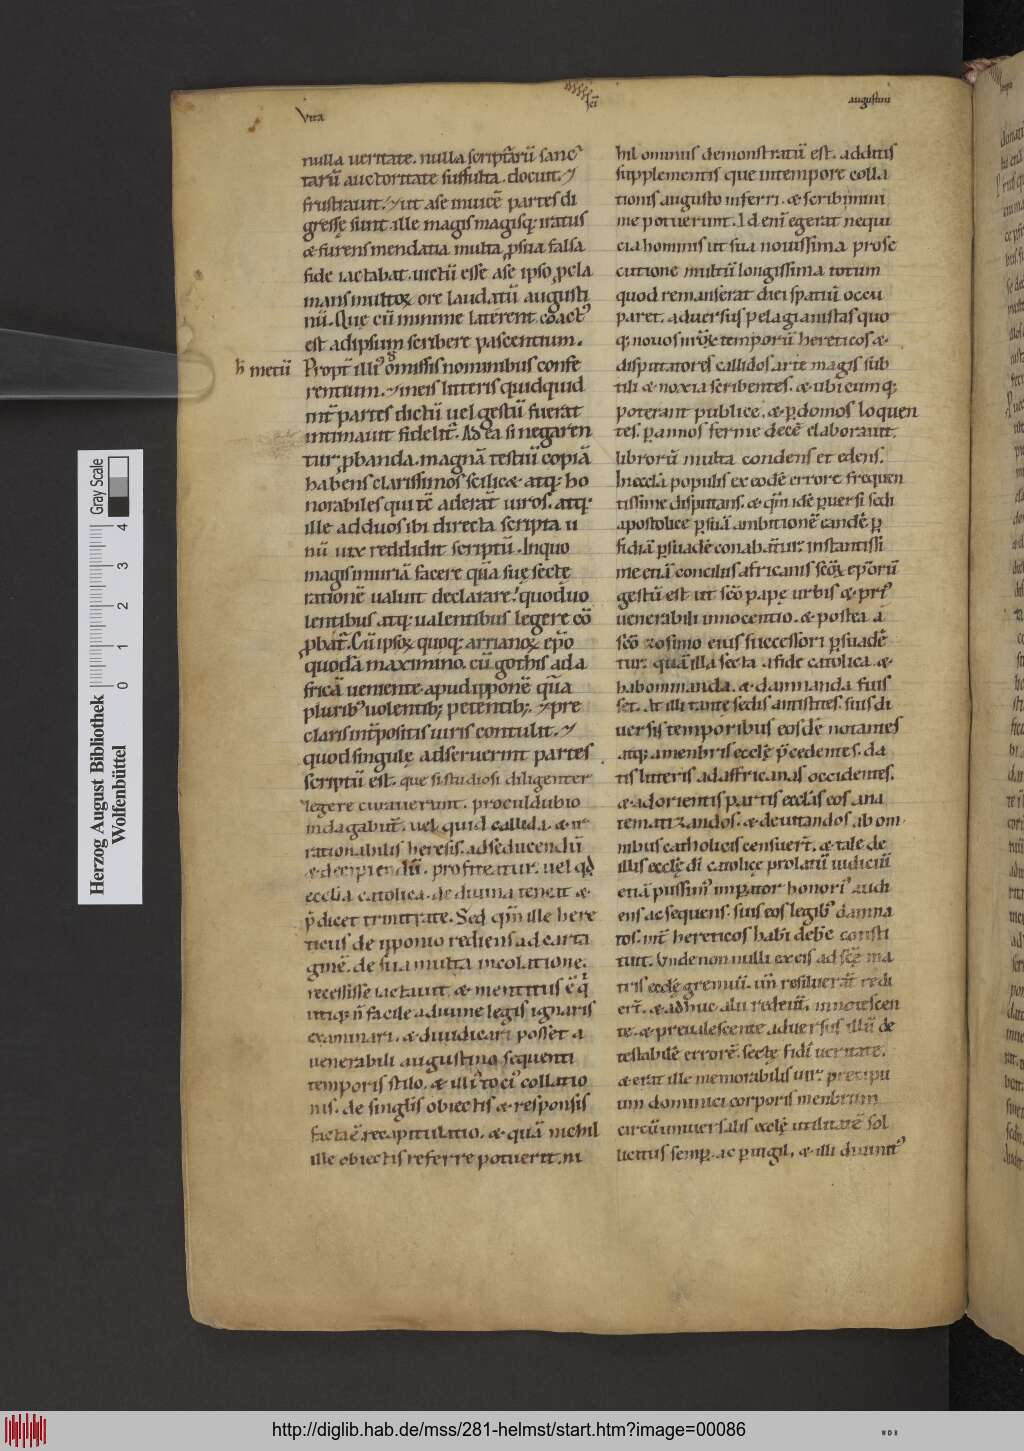 Vita
sc̄i
augustini
nulla ueritate. nulla scriptarū sanc
tarū auctoritate suffulta. docuit. &
frustrauit. & ut a se inuicē partes di
gressę sunt. ille magis magisq; iratus
& furens mendatia multa ꝓ sua falsa
fide iactabat. uictū esse a se ipso ꝓcla
mans multoꝝ ore laudatū augusti
nū. Quę cū minime laterent. coactꝰ
est ad ipsum scribere pascentium.
h̄ metū
Propt̄ illiꝰ omissis nominibus confe
rentium. & in eis litteris quidquid
int̄ partes dictū uel gestū fuerat
intimauit fidelit̄. Ad ea si negaren
tur ꝓbanda. magnā testiū copiā
habens clarissimos scilic& atq; ho
norabiles qui tc̄ aderāt uiros. atq;
ille ad duos ibi directa scripta u
nū uix reddidit scriptū. In quo
magis iniuriā facere quā suę sectę
rationē ualuit declarare. quod uo
lentibus atq; ualentibus legere cō
ꝓbat̄. Cū ipsoꝝ quoq; arrianoꝝ ep̄o
quodā maximino. cū gothis ad a
fricā ueniente. apud ipponē quā
pluribꝰ uolentib; petentib;. & pre
claris int̄positis uiris contulit. &
quod singulę adseruerint partes
scriptū est. que si studiosi diligenter
legere curauerint. proculdubio
indagabunt̄. uel quid callida. & ir
rationabilis heresis. ad seducendū
& decipiendū. profiteatur. uel qđ
ecclia catolica. de diuina teneat &
p̄dicet trinitate. Sed qm̄ ille here
ticus de ipponio rediens ad carta
ginē. de sua multa in colatione.
recessisse iactauit. & mentitus ē. q̄
utiq; n̄ facile a diuine legis ignaris
examinari. & diiudicari posset a
uenerabili augustino sequenti
temporis stilo. & illiꝰ totiꝰ collatio
nis. de singlis obiectis & responsis
facta ē recapitulatio. & quā nichil
ille obiectis referre potuerit. ni
hil ominus demonstratū est. additis
supplementis que in tempore colla
tionis augusto inferri. & scribi mini
me potuerunt. Id enī egerat nequi
cia hominis ut sua nouissima prose
cutione multū longissima totum
quod remanserat diei spatiū occu
paret. aduersus pelagianistas quo
q; nouos nr̄oꝝ temporū hereticos &
disputatores callidos. arte magis sub
tili & noxia scribentes. & ubicumq;
poterant publice. & ꝑ domos loquen
tes. ꝑ annos ferme decē elaborauit.
librorū multa condens et edens.
In eccla populis ex eodē errore frequen
tissime disputans. & qm̄ idē ꝑuersi sedi
apostolice ꝑ suā ambitionē eandē ꝑ
fidiā ꝑsuadē conabat̄ur. instantissi
me etiā conciliis africanis scōꝝ ep̄orū
gestū est ut scō papę urbis & priꝰ
uenerabili innocentio. & postea a
scō zosimo eius successori ꝑsuadē
tur. quā illa secta a fide catolica. &
habominanda. & damnanda fuis
set. At illi tantę sedis antistites. suis di
uersis temporibus eosdē notantes
atq; a menbris ecclę p̄cedentes. da
tis litteris ad affricanas occidentes.
& ad orientis partis ecclas eos ana
tematizandos. & deuitandos ab om
nibus catholicis censuert̄. & tale de
illis ecclę dī catolicę prolatū iudiciū
etiā piissimꝰ imꝑator honoriꝰ audi
ens ac sequens. suis eos legibꝰ damna
tos. int̄ hereticos habi debe consti
tuit. Unde non nulli ex eis ad scē ma
tris ecclę gremiū. un̄ resiluerāt redi
ert̄. & adhuc alii redeūt. innotescen
te. & preualescente aduersus illū de
testabilē errorē. sectę fidei ueritate.
& erat ille memorabilis uir. precipu
um dominici corporis menbrum
circū uniuersalis ecclę utilitatē sol
licitus semp. ac ꝑuigil. & illi diuinitꝰ
Herzog August Bibliothek
Wolfenbüttel
0 1 2 3 4
Gray Scale
http://diglib.hab.de/mss/281-helmst/start.htm?image=00086